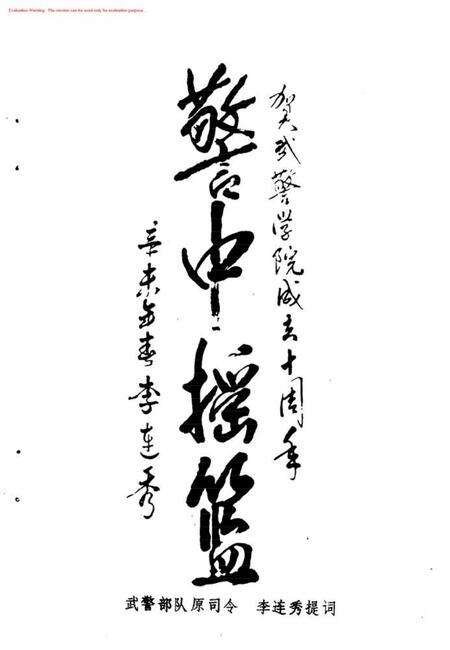 Evaluation Warning : The version can be used only for evaluation purpose...
贺武警学院成立十周年
警中摇篮
辛未年春李连秀
武警部队原司令　李连秀提词